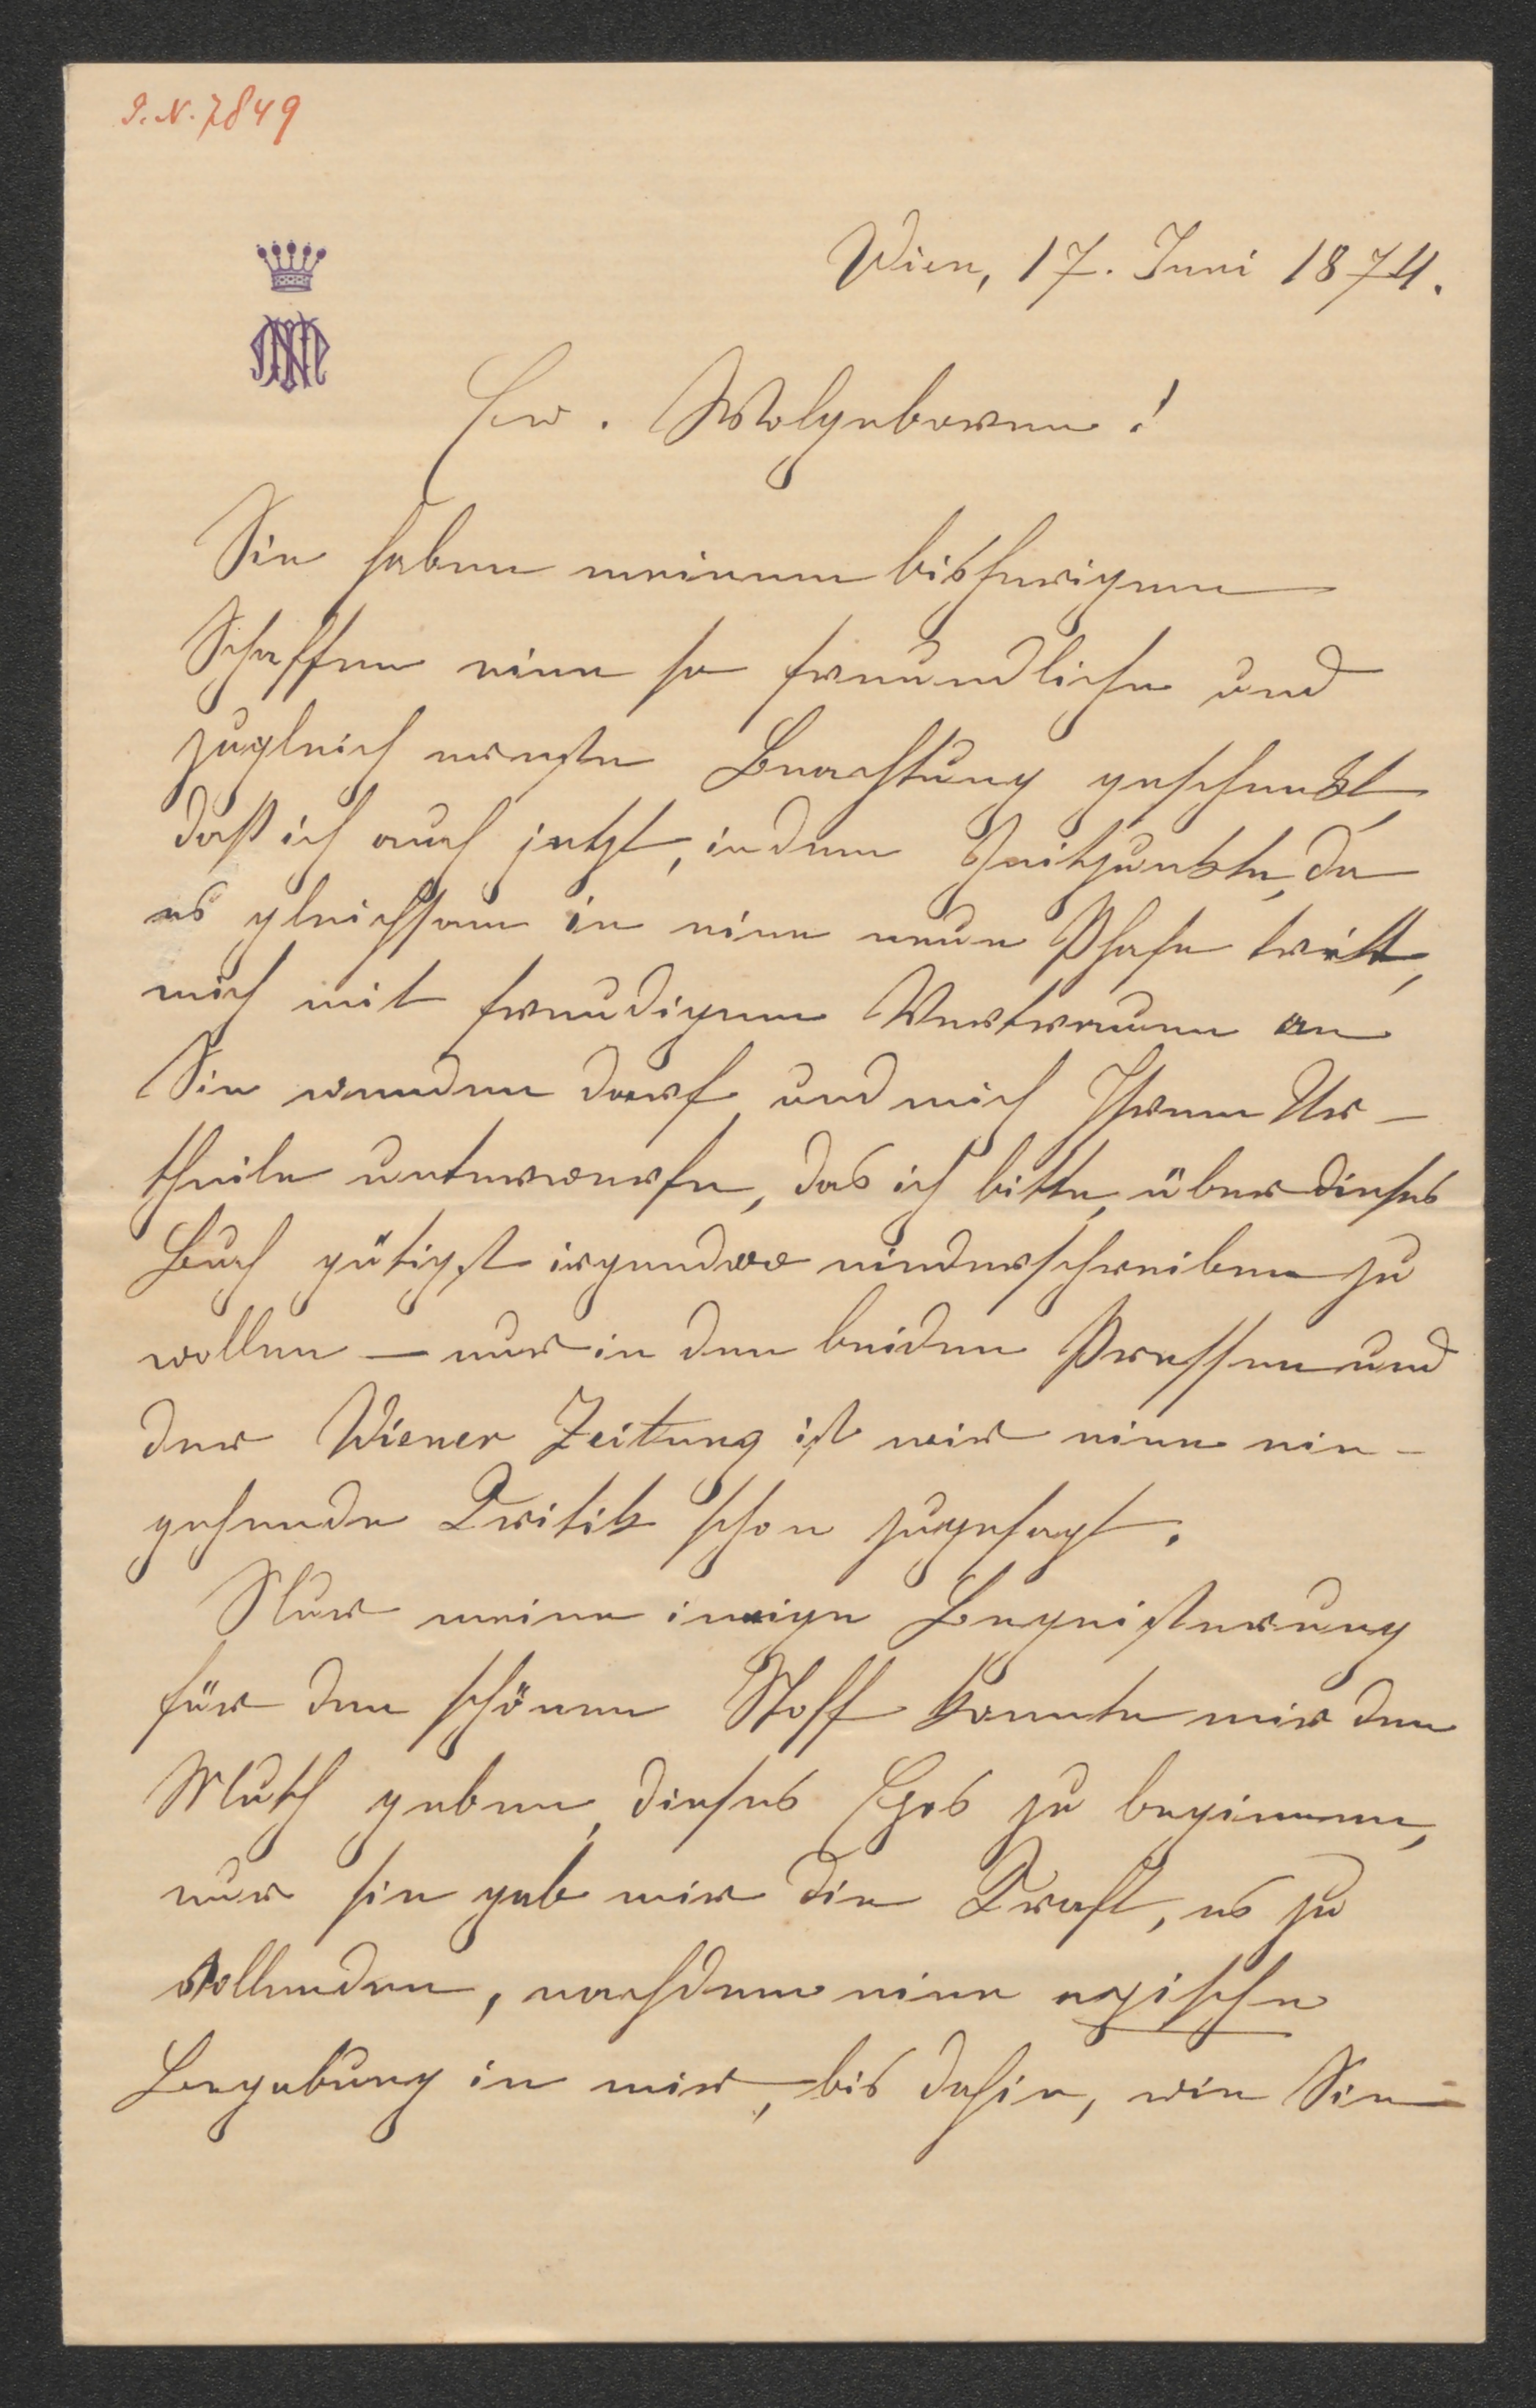 I. N. 7849
Wien, 17. Juni 1874.
Ew. Wolgeboren!
Sie haben meinem bisherigen
Schaffen eine so freundliche und
zugleich ernste Beachtung geschenkt,
daß ich auch jetzt, in dem Zeitpunkte, da
es gleichsam in eine neue Phase tritt,
mich mit freudigem Vertrauen an
Sie wenden darf und mich Ihrem Ur-
theile unterwerfe, das ich bitte, über dieses
Buch gütigst irgendwo niederschreiben zu
wollen – nur in den beiden Pressen und
der Wiener Zeitung ist mir eine ein-
gehende Kritik schon zugesagt.
Nur meine innige Begeisterung
für den schönen Stoff konnte mir den
Muth geben, dieses Epos zu beginnen,
nur sie gab mir die Kraft, es zu
vollenden, nachdem eine epische
Begabung in mir, bis dahin, wie Sie